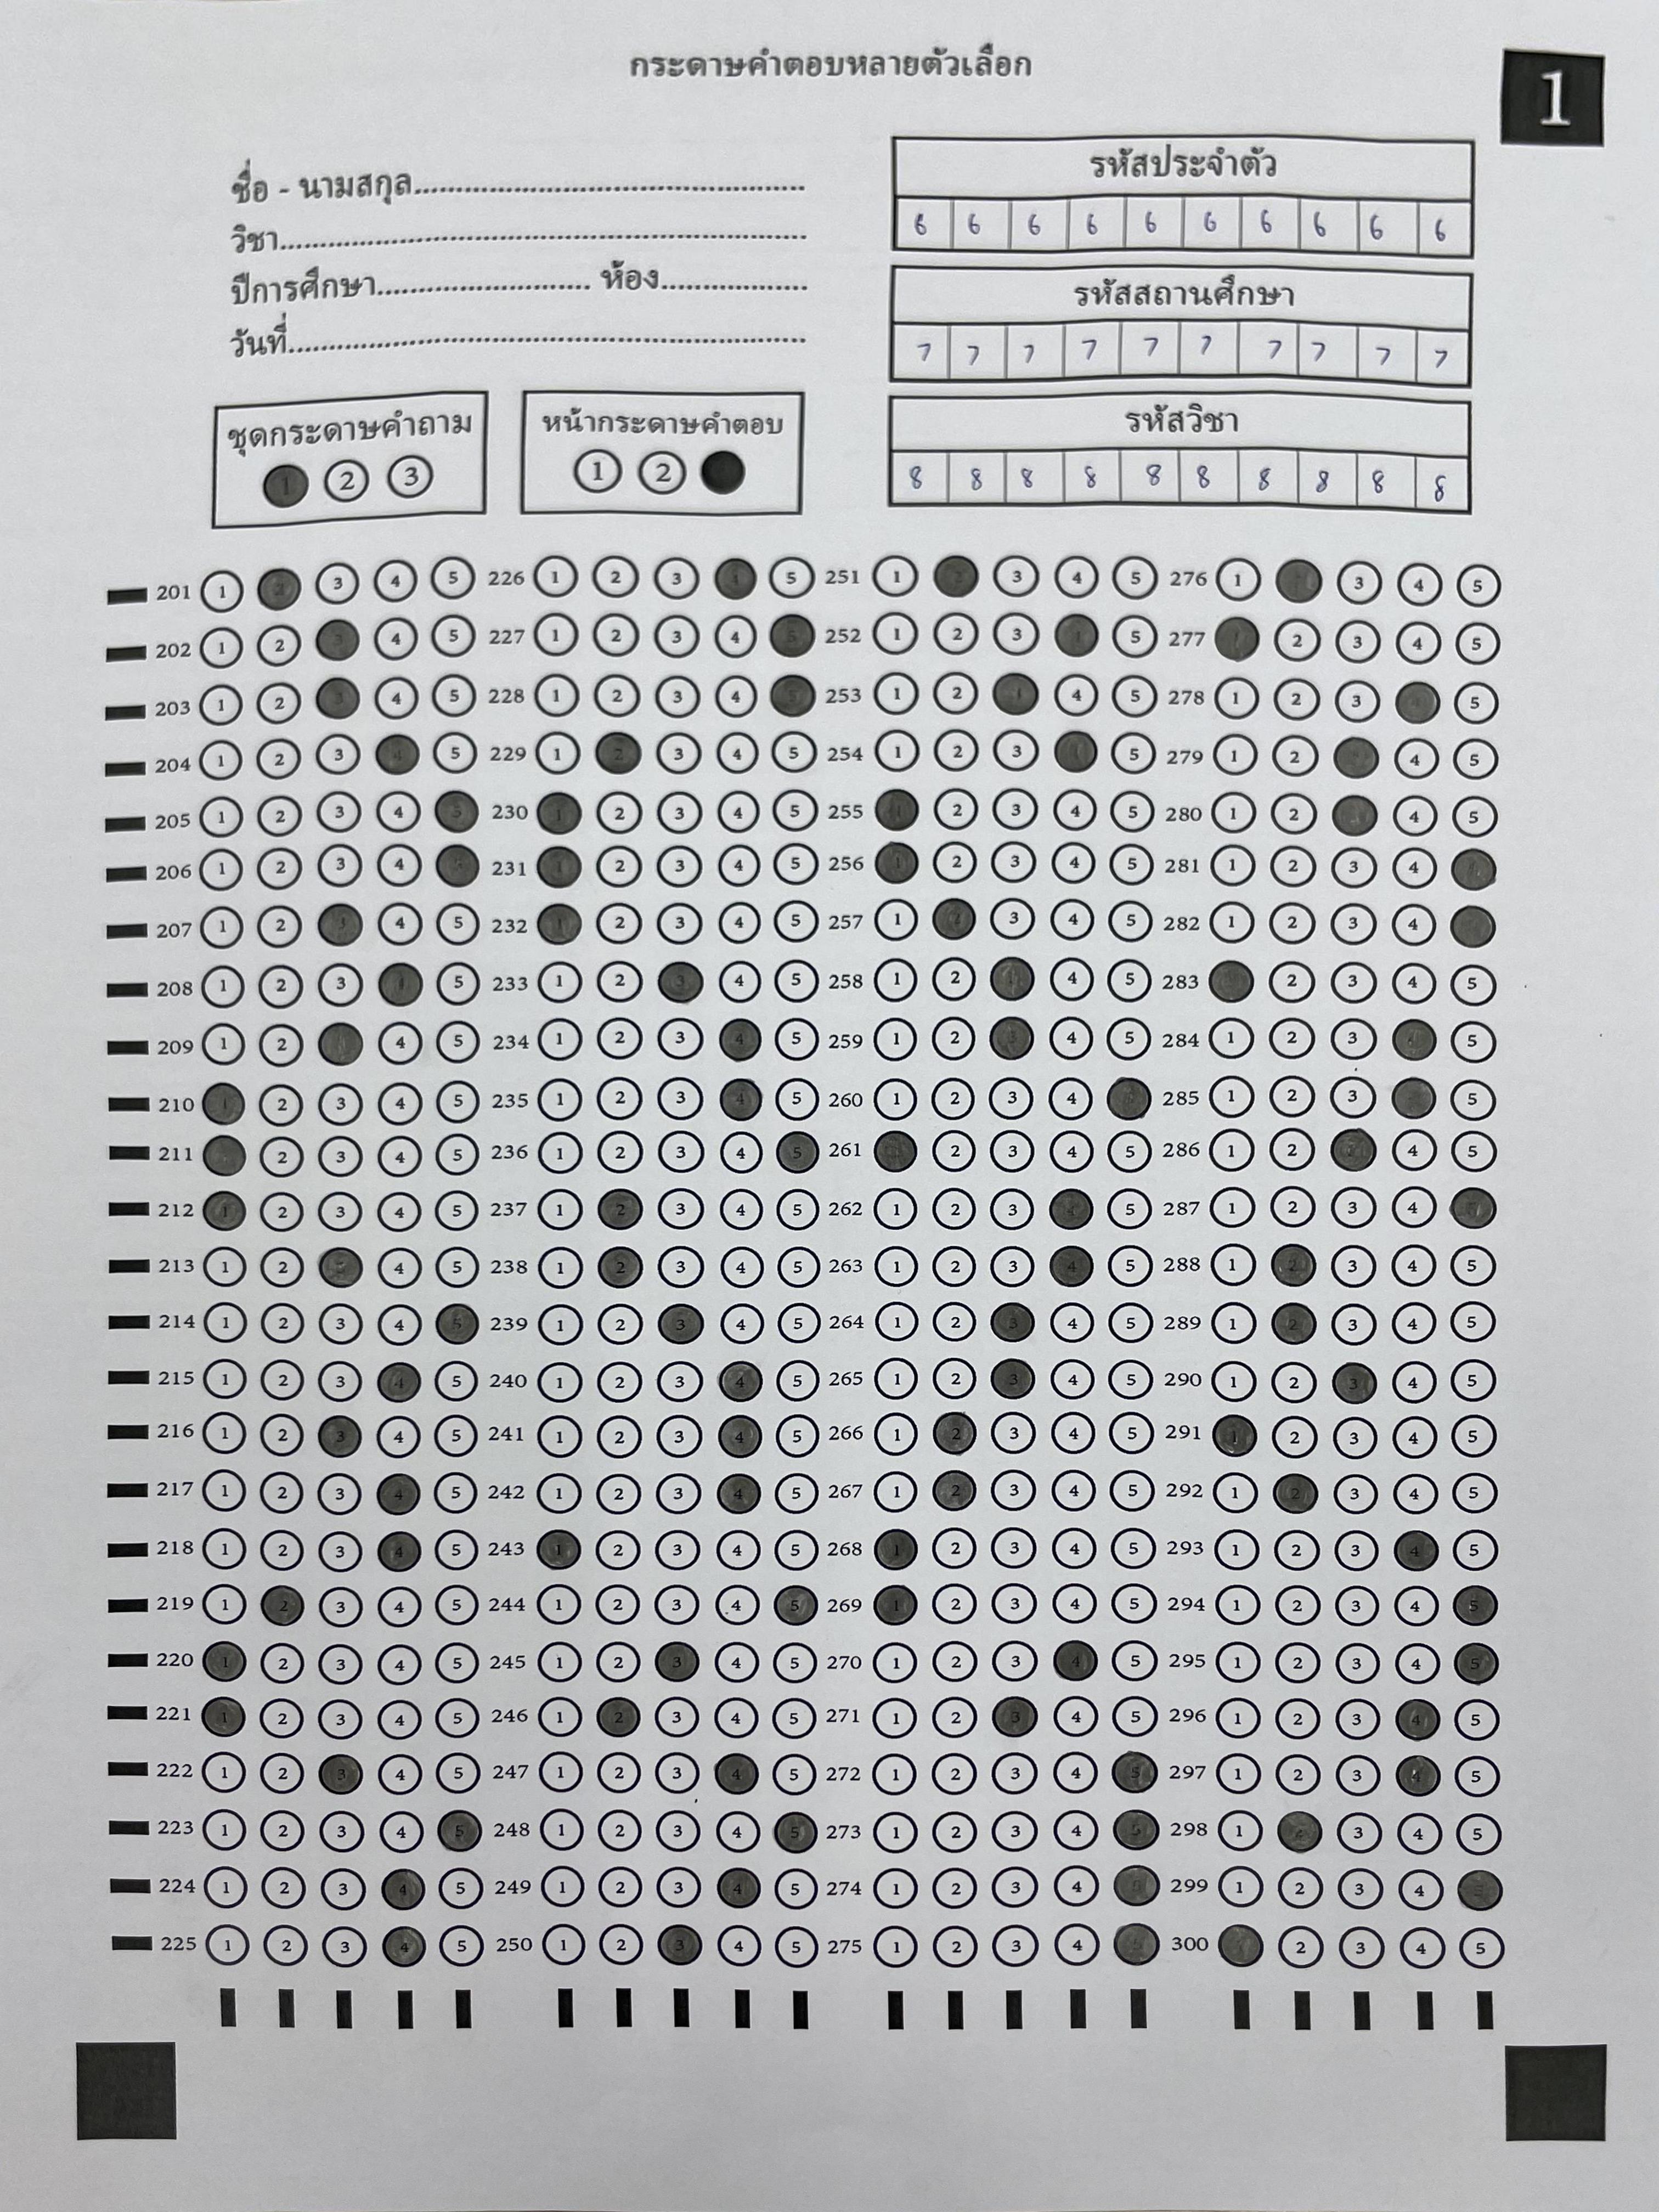 กระดาษคำตอบหลายตัวเลือก
1
ชื่อ - นามสกุล......................................................
วิชา......................................................
ปีการศึกษา.......................... ห้อง..................
วันที่......................................................
รหัสประจำตัว
6 6 6 6 6 6 6 6 6 6
รหัสสถานศึกษา
7 7 7 7 7 7 7 7 7 7
รหัสวิชา
8 8 8 8 8 8 8 8 8 8
ชุดกระดาษคำถาม
1 2 3
หน้ากระดาษคำตอบ
1 2
201 1 2 3 4 5 226 1 2 3 4 5 251 1 2 3 4 5 276 1 2 3 4 5
202 1 2 3 4 5 227 1 2 3 4 5 252 1 2 3 4 5 277 1 2 3 4 5
203 1 2 3 4 5 228 1 2 3 4 5 253 1 2 3 4 5 278 1 2 3 4 5
204 1 2 3 4 5 229 1 2 3 4 5 254 1 2 3 4 5 279 1 2 3 4 5
205 1 2 3 4 5 230 1 2 3 4 5 255 1 2 3 4 5 280 1 2 3 4 5
206 1 2 3 4 5 231 1 2 3 4 5 256 1 2 3 4 5 281 1 2 3 4 5
207 1 2 3 4 5 232 1 2 3 4 5 257 1 2 3 4 5 282 1 2 3 4
208 1 2 3 4 5 233 1 2 3 4 5 258 1 2 3 4 5 283 1 2 3 4 5
209 1 2 3 4 5 234 1 2 3 4 5 259 1 2 3 4 5 284 1 2 3 4 5
210 1 2 3 4 5 235 1 2 3 4 5 260 1 2 3 4 5 285 1 2 3 4 5
211 1 2 3 4 5 236 1 2 3 4 5 261 1 2 3 4 5 286 1 2 3 4 5
212 1 2 3 4 5 237 1 2 3 4 5 262 1 2 3 4 5 287 1 2 3 4 5
213 1 2 3 4 5 238 1 2 3 4 5 263 1 2 3 4 5 288 1 2 3 4 5
214 1 2 3 4 5 239 1 2 3 4 5 264 1 2 3 4 5 289 1 2 3 4 5
215 1 2 3 4 5 240 1 2 3 4 5 265 1 2 3 4 5 290 1 2 3 4 5
216 1 2 3 4 5 241 1 2 3 4 5 266 1 2 3 4 5 291 1 2 3 4 5
217 1 2 3 4 5 242 1 2 3 4 5 267 1 2 3 4 5 292 1 2 3 4 5
218 1 2 3 4 5 243 1 2 3 4 5 268 1 2 3 4 5 293 1 2 3 4 5
219 1 2 3 4 5 244 1 2 3 4 5 269 1 2 3 4 5 294 1 2 3 4 5
220 1 2 3 4 5 245 1 2 3 4 5 270 1 2 3 4 5 295 1 2 3 4 5
221 1 2 3 4 5 246 1 2 3 4 5 271 1 2 3 4 5 296 1 2 3 4 5
222 1 2 3 4 5 247 1 2 3 4 5 272 1 2 3 4 5 297 1 2 3 4 5
223 1 2 3 4 5 248 1 2 3 4 5 273 1 2 3 4 5 298 1 2 3 4 5
224 1 2 3 4 5 249 1 2 3 4 5 274 1 2 3 4 5 299 1 2 3 4 5
225 1 2 3 4 5 250 1 2 3 4 5 275 1 2 3 4 5 300 1 2 3 4 5